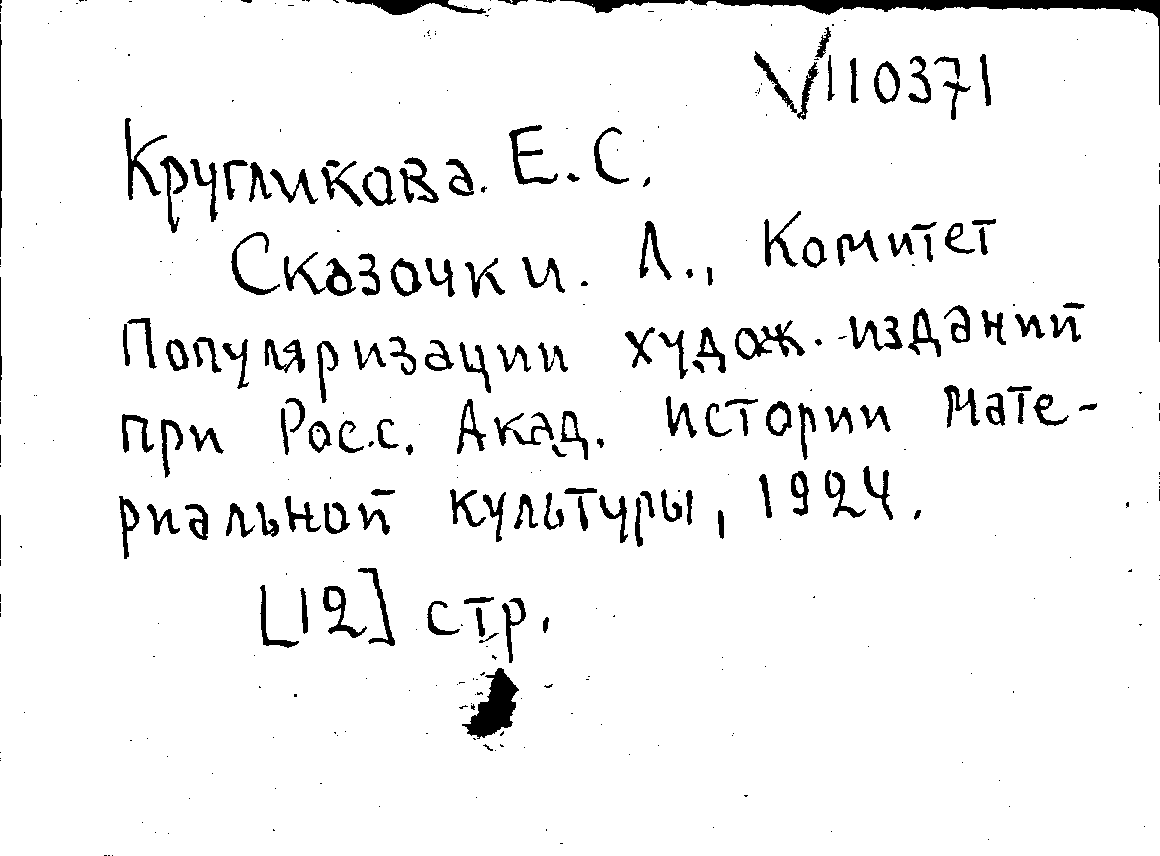 V110371
Кругликова Е.С.
Сказочки. Л., Комитет
Популяризации худож. изданий
при Росс. Акад. истории мате-
риальной культуры, 1924.
[12] стр.